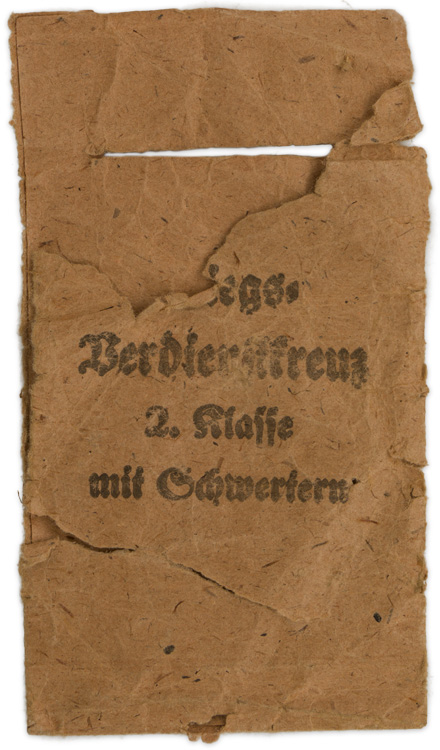 iegs-
Verdienstkreuz
2. Klasse
mit Schwertern